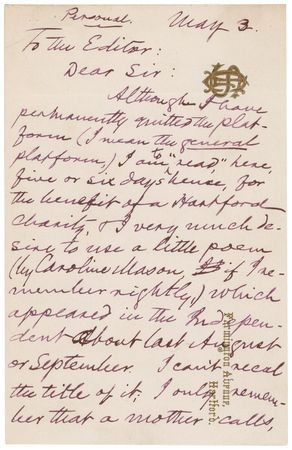 Personal. May 3.
To the Editor:
Dear Sir:
Although I have
permanently quitted the plat-
form (I mean the general
platform,) I am to "read," here,
five or six days hence, for
the benefit of a Hartford
charity, & I very much de-
sire to use a little poem
(by Caroline Mason, if I re-
member rightly,) which
appeared in the Indepen-
dent about last August
or September. I can't recal
the title of it. I only remem-
ber that a mother calls,
Farmington Avenue,
Hartford.